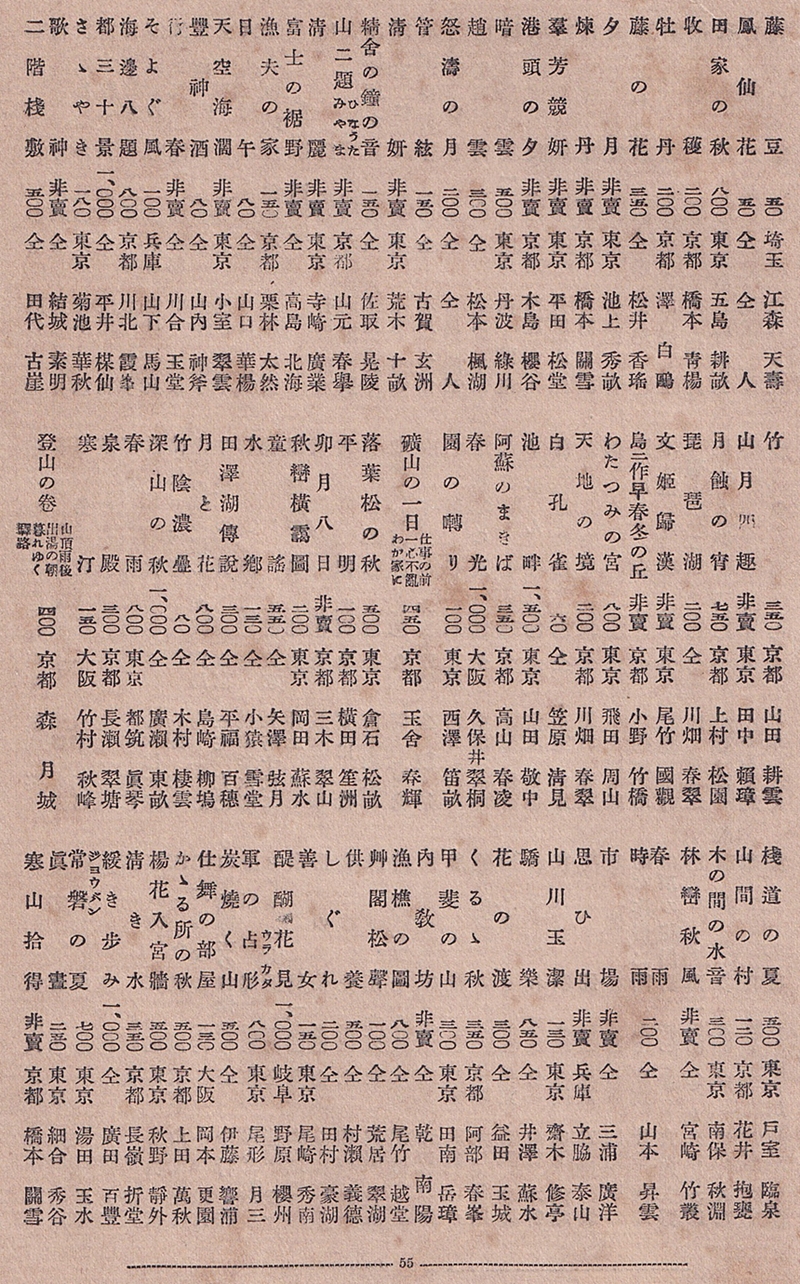 藤豆 五〇 埼玉 江森天壽
鳳仙花 五〇 仝 仝人
田家の秋 八〇〇 東京 五島耕畝
牧穫 二〇〇 京都 橋本青楊
牡丹 二〇〇 京都 澤白鴎
藤の花 三五〇 仝 松井香瑤
夕月 非賣 東京 池上秀畝
煉丹 非賣 京都 橋本關雪
羣芳競妍 非賣 東京 平田松堂
港頭の夕 非賣 京都 木島櫻谷
暗雲 五〇〇 東京 丹波綠川
趙雲 三〇〇 仝 松本楓湖
怒濤の月 二〇〇 仝 仝人
管絃 一五〇 仝 古賀玄洲
清妍 非賣 東京 荒木十畝
精舍の鐘の音 一五〇 仝 佐取晃陵
山二題 ひなうた みやま 非賣 京都 山元春擧
清麗 非賣 東京 寺崎廣業
富士の裾野 非賣 仝 高島北海
漁夫の家 一五〇 京都 栗林太然
日午 八〇 仝 山口華楊
天空海濶 非賣 東京 小室翠雲
豐神酒 八〇 仝 山内神斧
行春 非賣 仝 川合玉堂
そよぐ風 一〇〇 兵庫 山下馬山
海邊八題 八〇〇 京都 川北霞峯
都三十景 一、〇〇〇 仝 平井楳仙
さゝやき 一八〇 東京 菊池華秋
歌神 非賣 仝 結城素明
二階棧敷 五〇〇 仝 田代古崖
竹 三五〇 京都 山田耕雲
山月四趣 非賣 東京 田中頼璋
月蝕の宵 七五〇 京都 上村松園
琵琶湖 二〇〇 仝 川畑春翠
文姬歸漢 非賣 東京 尾竹國觀
島二作早春冬の丘 非賣 京都 小野竹橋
わたつみの宮 八〇〇 東京 飛田周山
天地の境 二〇〇 京都 川畑春翠
白孔雀 六〇 仝 笠原清見
池畔 一、五〇〇 東京 山田敬中
阿蘇のまきば 三五〇 京都 高山春凌
春光 一、〇〇〇 大阪 久保井翠桐
園の囀り 一〇〇 東京 西澤笛畝
礦山の一日 仕事の前 一心不亂 わか家に 四五〇 京都 玉舍春輝
落葉松の秋 五〇〇 東京 倉石松畝
平明 一〇〇 京都 橫田笙洲
卯月八日 非賣 京都 三木翠山
秋巒橫靄圖 二〇〇 東京 岡田蘇水
童謠 五五〇 仝 矢澤弦月
水鄕 一三〇 仝 小猿雪堂
田澤湖傳說 三〇〇 仝 平福百穗
月と花 八〇〇 仝 島崎柳塢
竹陰濃疊 八〇 仝 木村棲雲
深山の秋 一、〇〇〇 仝 廣瀨東畝
春雨 八〇〇 東京 都筑眞琴
泉殿 三〇〇 京都 長瀨翠塘
寒汀 一五〇 大阪 竹村秋峰
登山の卷 山頂雨後 出湯の朝 暮れゆく驛路 四〇〇 京都 森月城
棧道の夏 五〇〇 東京 戶室臨泉
山間の村 一二〇 京都 花井抱甕
木の間の水音 三〇〇 東京 南保秋淵
林巒秋風 非賣 仝 宮崎竹叢
春雨 時雨 二〇〇 仝 山本昇雲
市場 非賣 仝 三浦廣洋
思ひ出 非賣 兵庫 立脇泰山
山川玉潔 一三〇 東京 齋木修亭
驕樂 八五〇 仝 井澤蘇水
花の渡 三〇〇 仝 益田玉城
くるゝ秋 三五〇 京都 阿部春峯
甲斐の山 三〇〇 東京 田南岳璋
内敎坊 非賣 仝 乾南陽
漁樵の圖 八〇〇 仝 尾竹越堂
艸閣松聲 一〇〇 仝 荒居翠湖
供養 五〇〇 仝 村瀨義德
しぐれ 二〇〇 仝 田村豪湖
善女 一五〇 東京 尾崎秀南
醍醐花見 一、〇〇〇 岐阜 野原櫻州
軍の占形 ウラカタ 八〇〇 東京 尾形月三
炭燒く山 五〇〇 仝 伊藤響浦
仕舞の部屋 一三〇 大阪 岡本更園
かゝる所の秋 五〇〇 京都 上田萬秋
楊花入宮牆 五〇〇 東京 秋野靜外
清き水 三五〇 京都 長嶺折堂
綏き步み 一、〇〇〇 仝 廣田百豐
常磐の夏 ジヨウバン 七〇〇 東京 湯田玉水
眞晝 二五〇 東京 細合秀谷
寒山拾得 非賣 京都 橋本關雪
55